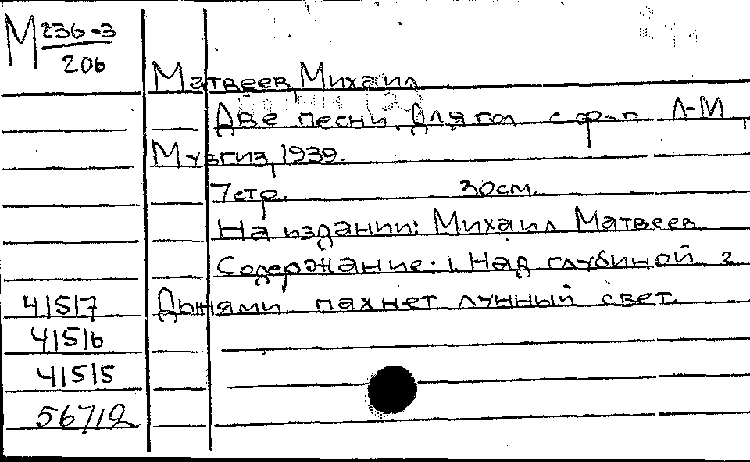 М 236-3
206
Матвеев, Михаил
Две песни. Для гол с ф-п Л-М,
Музгиз, 1939.
7 стр. 30 см.
На издании: Михаил Матвеев
Содержание: 1. Над глубиной 2
Дынями пахнет лунный свет.
41517
41516
41515
56712